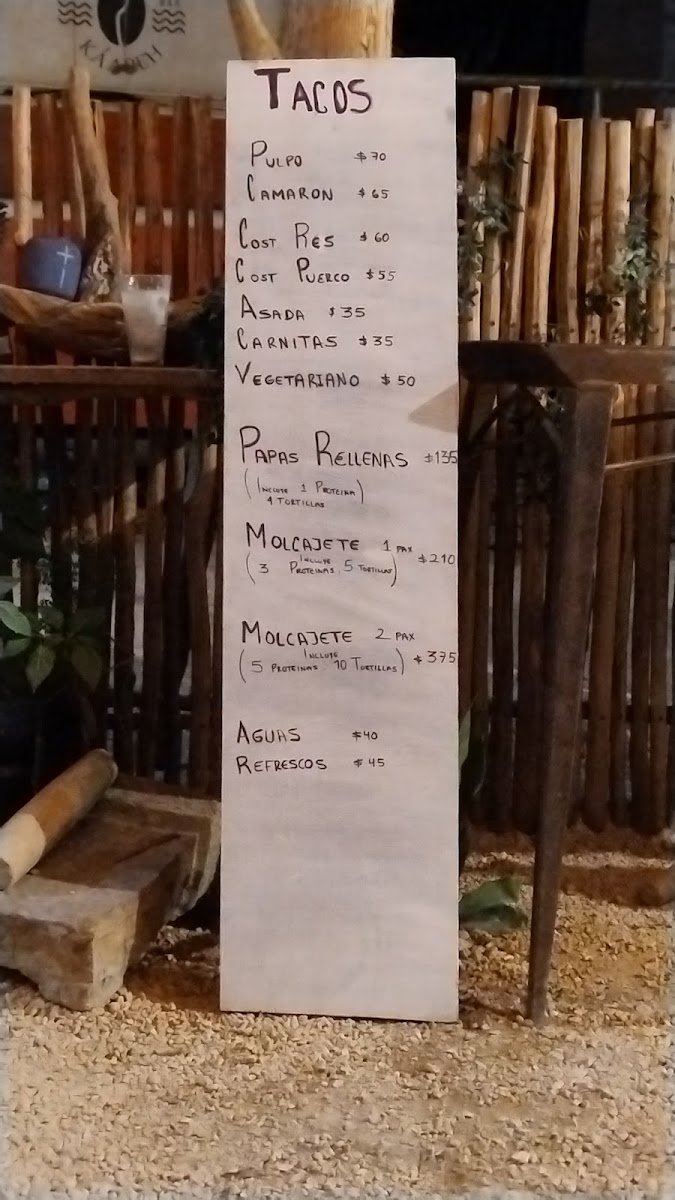 KÁAPEH
TACOS
PULPO $70
CAMARON $65
COST RES $60
COST PUERCO $55
ASADA $35
CARNITAS $35
VEGETARIANO $50
PAPAS RELLENAS $135
(INCLUYE 1 PROTEINA)
4 TORTILLAS
MOLCAJETE 1 PAX $210
INCLUYE
(3 PROTEINAS 5 TORTILLAS)
MOLCAJETE 2 PAX
INCLUYE $375
(5 PROTEINAS 10 TORTILLAS)
AGUAS $40
REFRESCOS $45